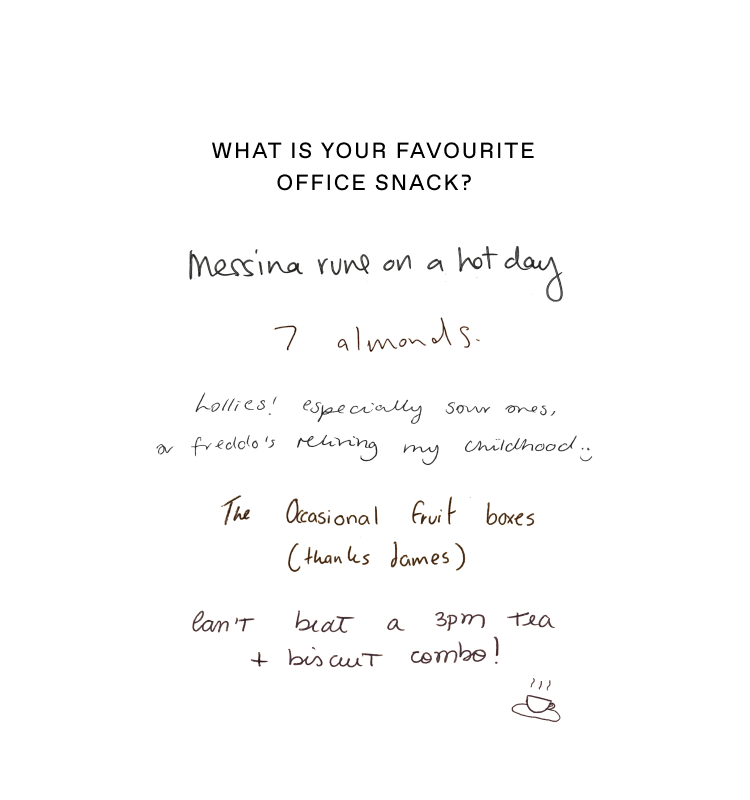 WHAT IS YOUR FAVOURITE
OFFICE SNACK?
Messina runs on a hot day
7 almonds.
Lollies! especially sour ones,
or freddo's reliving my childhood :)
The Occasional fruit boxes
(thanks James)
Can't beat a 3pm tea
+ biscuit combo!